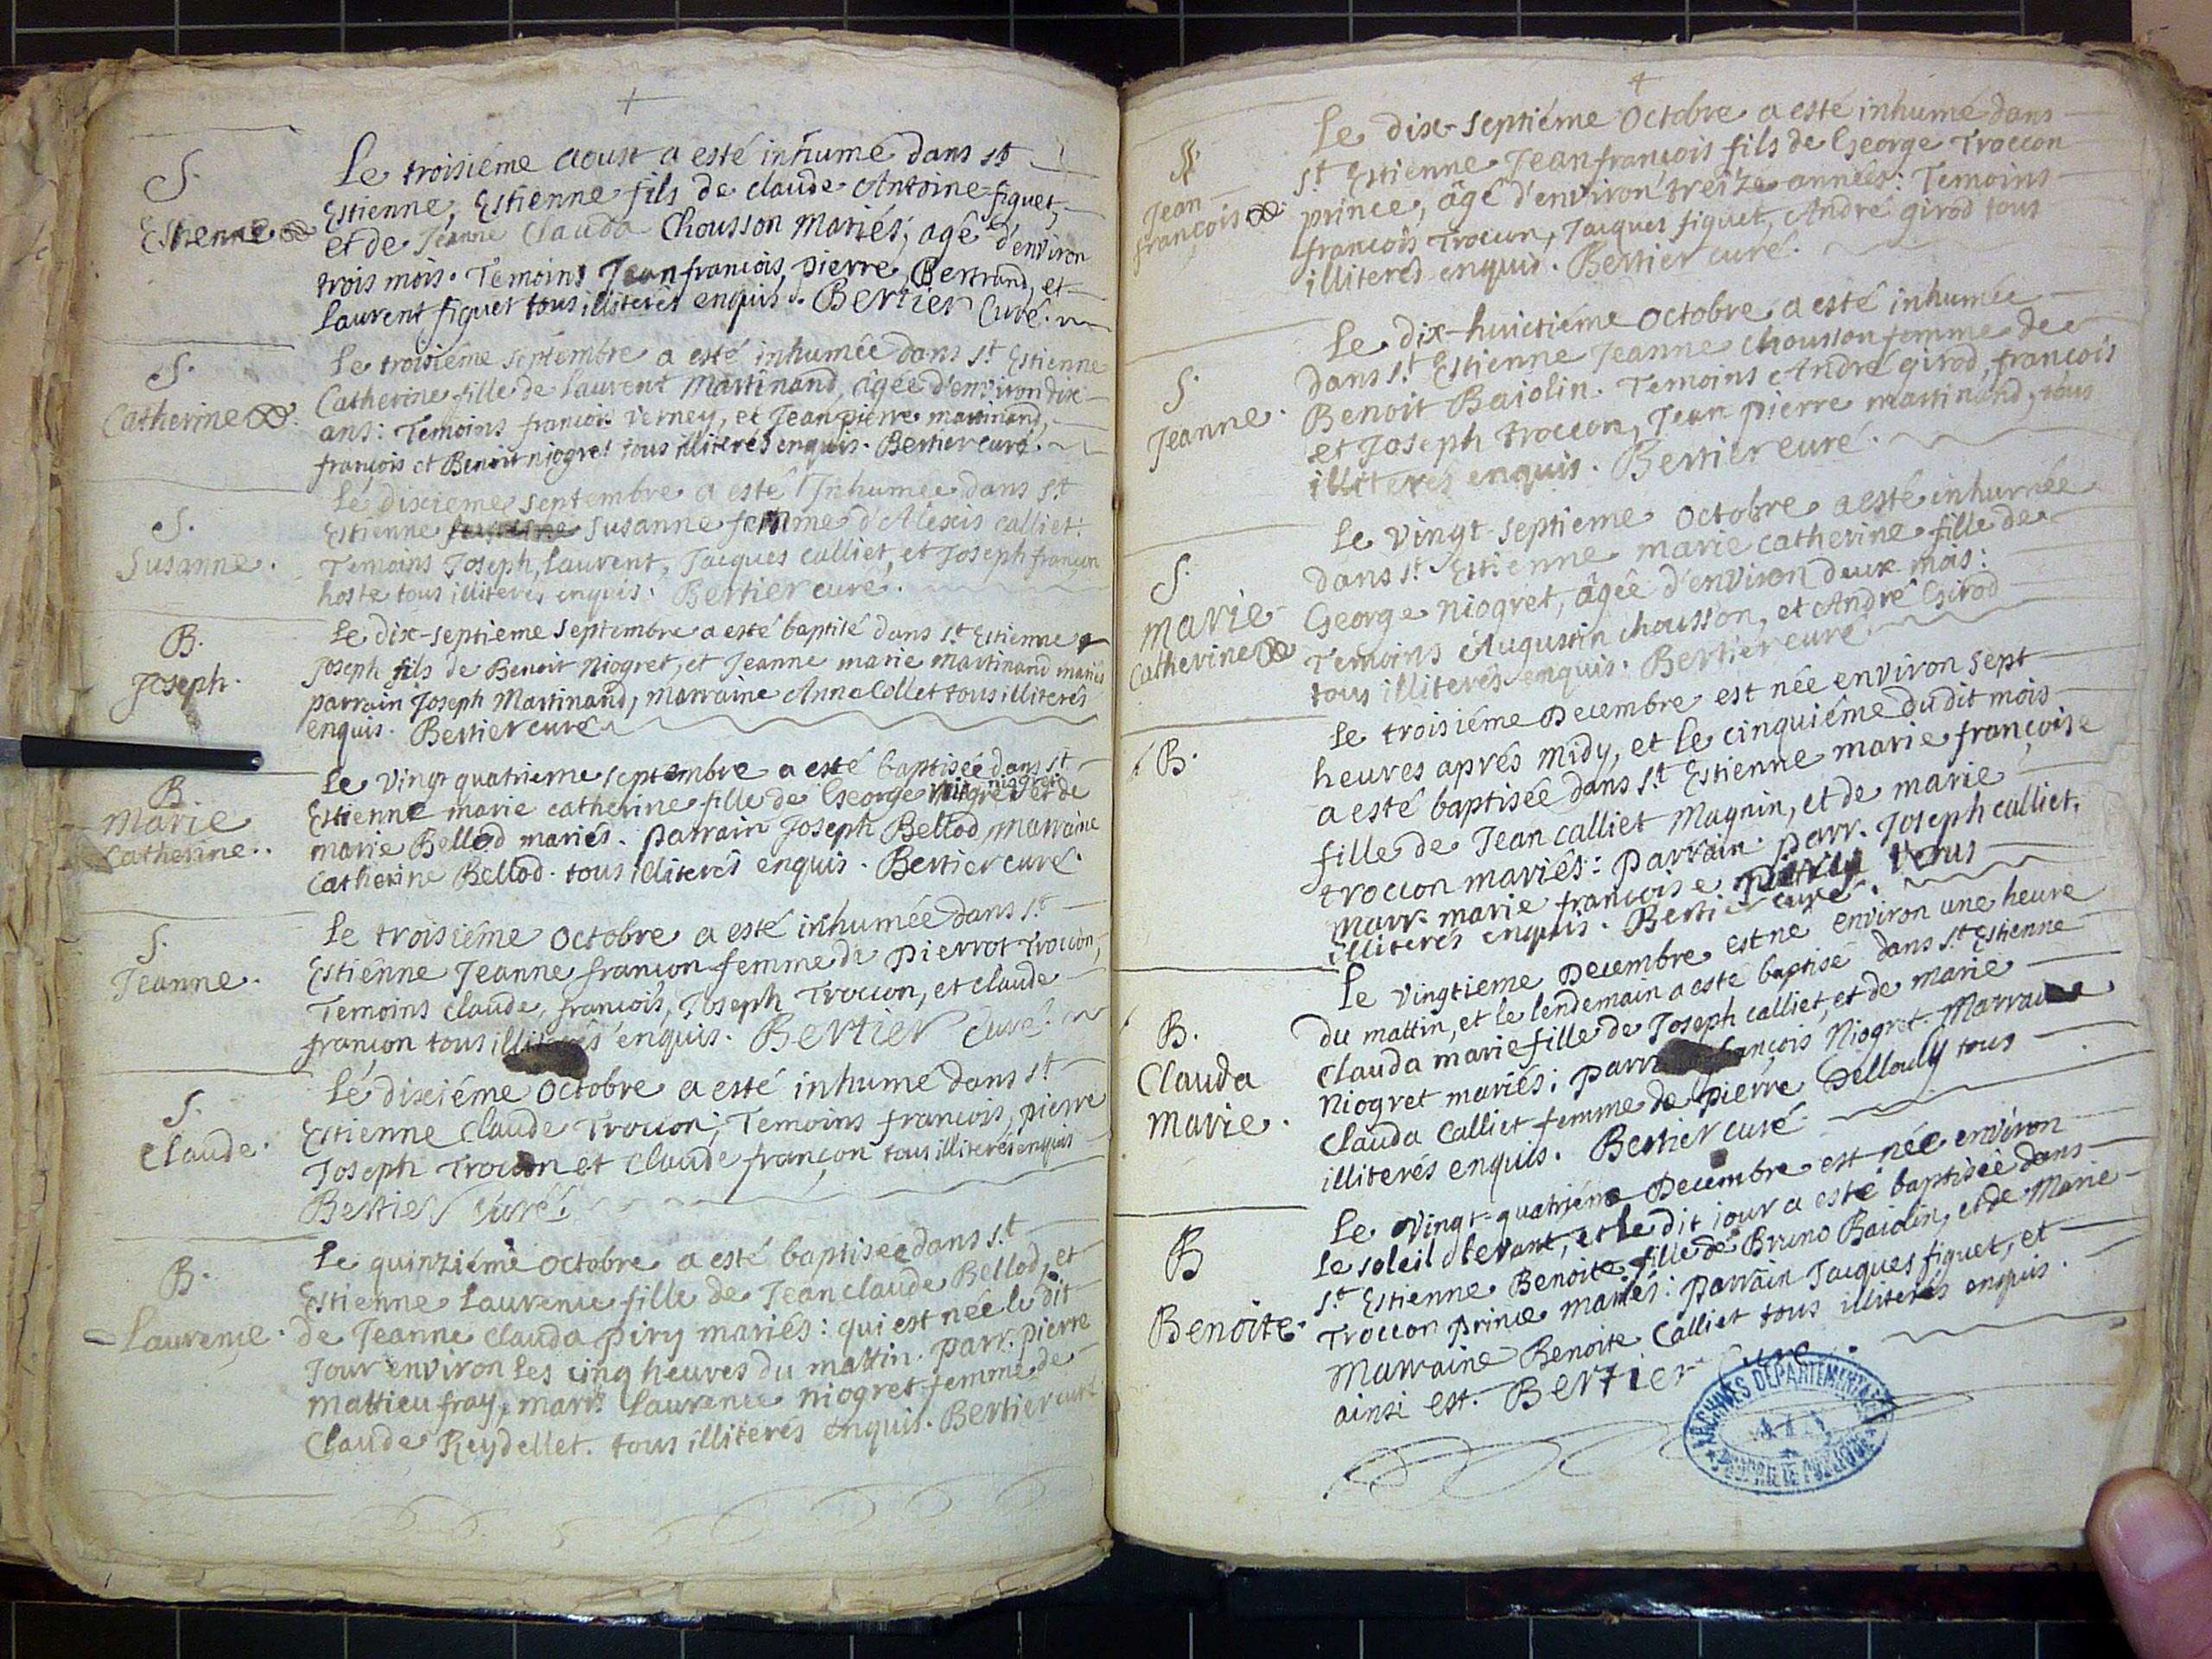 S.
Estienne
Le troisiéme Aoust a esté inhumé dans st
Estienne, Estienne fils de claude Antoine figuet,
et de Jeanne Clauda Chousson Mariés, agé d'environ
trois mois. Temoins Jean françois, pierre Bertrand, et
Laurent figuet tous illiterés enquis. Bertier Curé.
S.
Catherine
Le troisiéme septembre a esté inhumée dans st Estienne
Catherine fille de Laurent Martinand, âgée d'environ dix
ans: Temoins françois Verney, et Jean pierre martinand,
françois et Benoit niogret tous illiterés enquis. Bertier curé.
S.
Susanne.
Le dixieme septembre a esté Inhumée dans st
Estienne Susanne femme d'Alexis calliet:
Temoins Joseph, Laurent, Jacques calliet, et Joseph françon
hoste tous illiterés enquis. Bertier curé.
B.
Joseph.
Le dix-septieme septembre a esté baptisé dans st Estienne
Joseph fils de Benoit Niogret, et Jeanne marie martinand mariés
parrain Joseph Martinand, marraine Anna Collet tous illiterés
enquis. Bertier curé
B.
Marie
Catherine..
Le vingt quatrieme septembre a esté baptisée dans st
niogret
Estienne marie catherine fille de George et de
marie Bellod mariés. parrain Joseph Bellod, marraine
Catherine Bellod. tous illiterés enquis. Bertier curé.
S.
Jeanne.
Le troisiéme octobre a esté inhumée dans st
Estienne Jeanne françon femme de pierrot Troccon,
Temoins claude, françois, Joseph Troccon, et claude
françon tous illiterés enquis. Bertier Curé.
S.
Claude.
Le dixiéme octobre a esté inhumé dans st
Estienne Claude Troccon; Temoins françois, pierre
Joseph Troccon et Claude françon tous illiterés enquis
Bertier Curé.
B.
Laurence.
Le quinziéme octobre a esté baptisée dans st
Estienne Laurence fille de Jean claude Bellod, et
de Jeanne clauda piry mariés: qui est née le dit
Jour environ les cinq heures du mattin. parr. pierre
Mattieu fray, marr. Laurence niogret femme de
Claude Reydellet. tous illiterés enquis. Bertier curé
S.
Jean
françois
Le dix-septiéme Octobre a esté inhumé dans
st Estienne Jean françois fils de George Troccon
prince, âgé d'environ treize années: Temoins
françois Troccon, Jacques figuet, André girod tous
illiterés enquis. Bertier curé.
S.
Jeanne.
Le dix-huictiéme Octobre a esté inhumée
dans st Estienne Jeanne chousson femme de
Benoit Baiolin. Temoins André girod, françois
et Joseph troccon, Jean pierre martinand, tous
illiterés enquis. Bertier curé.
S.
marie
Catherine
Le vingt-septieme Octobre a esté inhumée
dans st Estienne marie catherine fille de
George niogret, âgée d'environ deux mois:
Temoins Augustin chousson, et André Girod
tous illiterés enquis. Bertier curé
B.
Le troisiéme Decembre est née environ sept
heures aprés Midy, et le cinquiéme du dit mois
a esté baptisée dans st Estienne marie françoise
fille de Jean calliet Magnin, et de marie
troccon mariés: parrain. parr. Joseph calliet,
marr. marie françoise tous
illiterés enquis. Bertier curé.
B.
Clauda
Marie.
Le vingtieme Decembre est né environ une heure
du mattin, et le lendemain a esté baptisé dans st Estienne
Clauda marie fille de Joseph calliet, et de marie
Niogret mariés; françois Niogret. Marraine
Clauda Calliet femme de pierre Dellouly tous
illiterés enquis. Bertier curé
B
Benoite.
Le vingt-quatriéme Decembre est née environ
le soleil levant, et le dit jour a esté baptisée dans
st Estienne Benoite fille de Bruno Baiolin, et de Marie
Troccon prince mariés: parrain Jacques figuet, et
Marraine Benoite Calliet tous illiterés enquis.
ainsi est. Bertier Curé.
ARCHIVES DEPARTEMENTALES